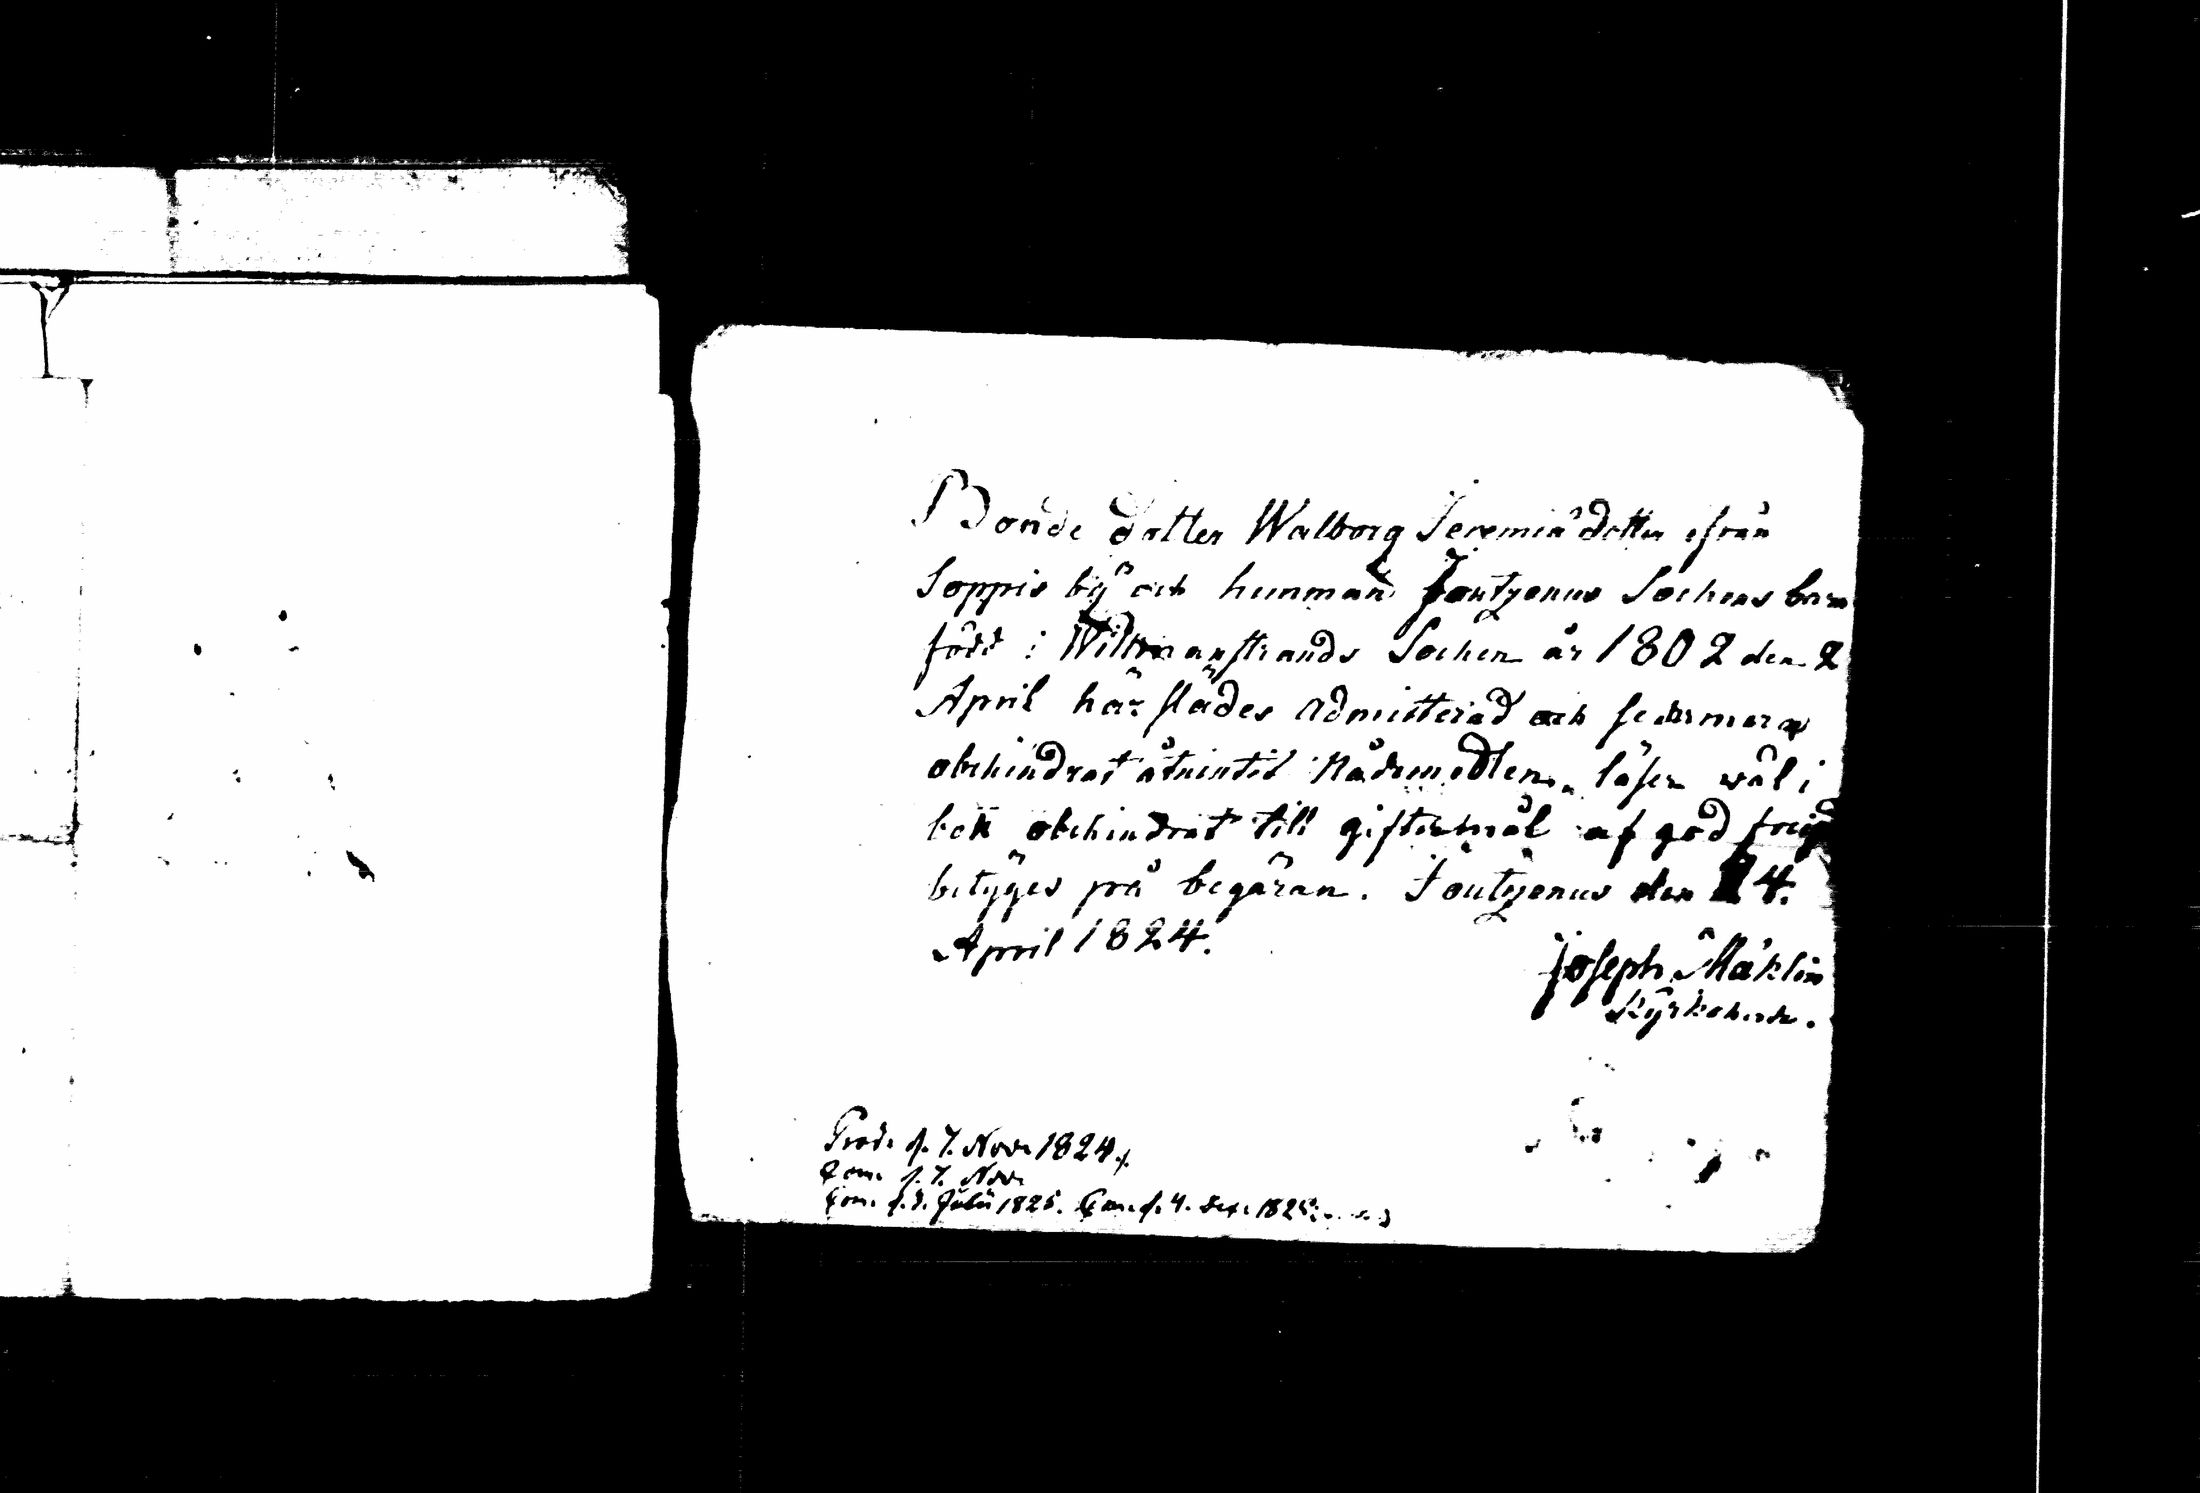 Bonde dotter Walborg Jeremiä dotter ifrån
Soppis bÿ och hemman Joutzenus Sochens barn
född i Willmanstrands Sochen år 1802 den 2
April härstädes admitterad och sedermera
obehindrat åtniutit Nådemedlen, läser wäl i
bok obehindrat till giftermål af god frejd
betÿges på begäran. Joutzenus den 14.
April 1824.
Joseph Mäklin
Kÿrkoherde.
Prod. d. 7. Novr 1824.
Com. d. 7. Novr
Com. d. 3. Julii 1825. Com. d. 4. 1825